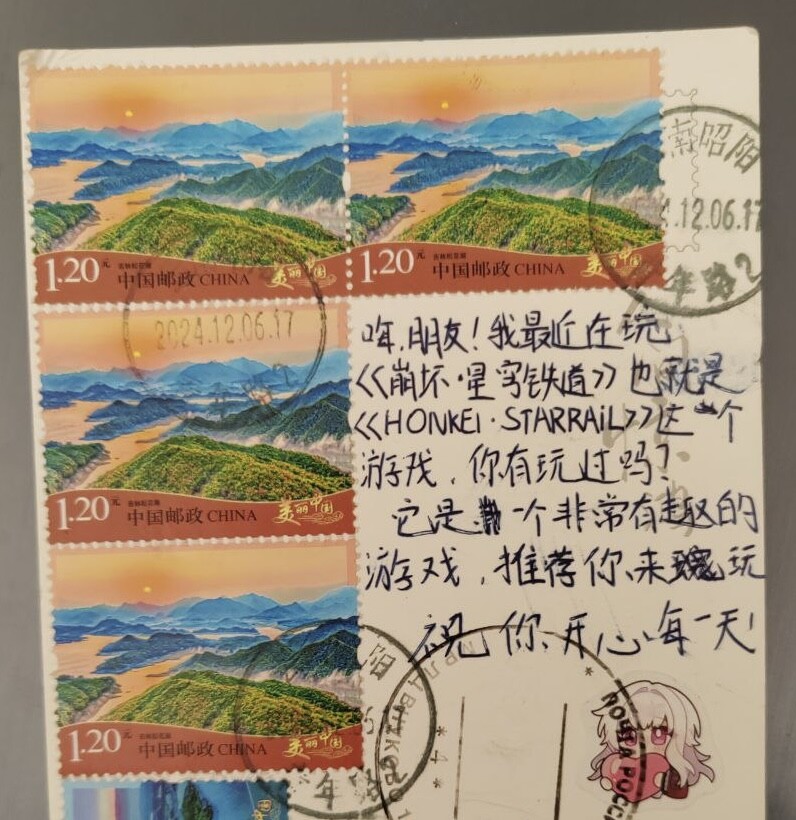 1.20元
吉林松花湖
中国邮政 CHINA
美丽中国
1.20元
吉林松花湖
中国邮政 CHINA
美丽中国
昭阳
.12.06.17
年路2
2024.12.06.17
1.20元
吉林松花湖
中国邮政 CHINA
美丽中国
嗨,朋友!我最近在玩
《崩坏·星穹铁道》也就是
《HONKEI·STARRAIL》这一个
游戏,你有玩过吗?
它是一个非常有趣的
游戏,推荐你来玩
祝你开心每一天!
1.20元
吉林松花湖
中国邮政 CHINA
美丽中国
阳
年路
*4*
ПОЧТА РОССИ